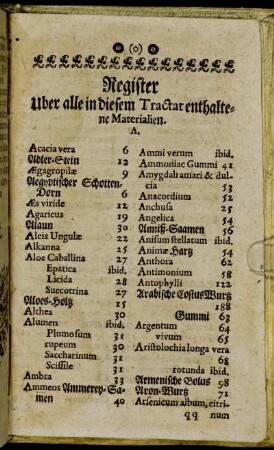 (o)
Register
Uber alle in diesem Tractat enthalte-
ne Materialien.
A.
Acacia vera 6
Adler-Stein 12
Ægagropilæ 9
Aegyptischer Schotten-
Dorn 6
Æs viride 12
Agaricus 19
Alaun 30
Alcis Ungulæ 22
Alkanna 25
Aloe Caballina 27
Epatica ibid.
Licida 28
Succotrina 27
Aloes-Holtz 15
Althea 30
Alumen ibid.
Plumosum 31
rupeum 30
Saccharinum 31
Scissile 31
Ambra 33
Ammeos Ammerey-Sa-
men 40
Ammi verum ibid.
Ammoniac Gummi 41
Amygdali amari & dul-
cia 53
Anacordium 52
Anchusa 25
Angelica 54
Anniß-Saamen 56
Anisum stellatum ibid.
Animæ Hartz 54
Anthora 62
Antimonium 58
Antophylli 122
Arabische Costus Wurtz
188
Gummi 63
Argentum 64
vivum 65
Aristolochia longa vera
68
rotunda ibid.
Armenische Bolus 98
Aron-Wurtz 71
Arsenicum album, citri-
qq num